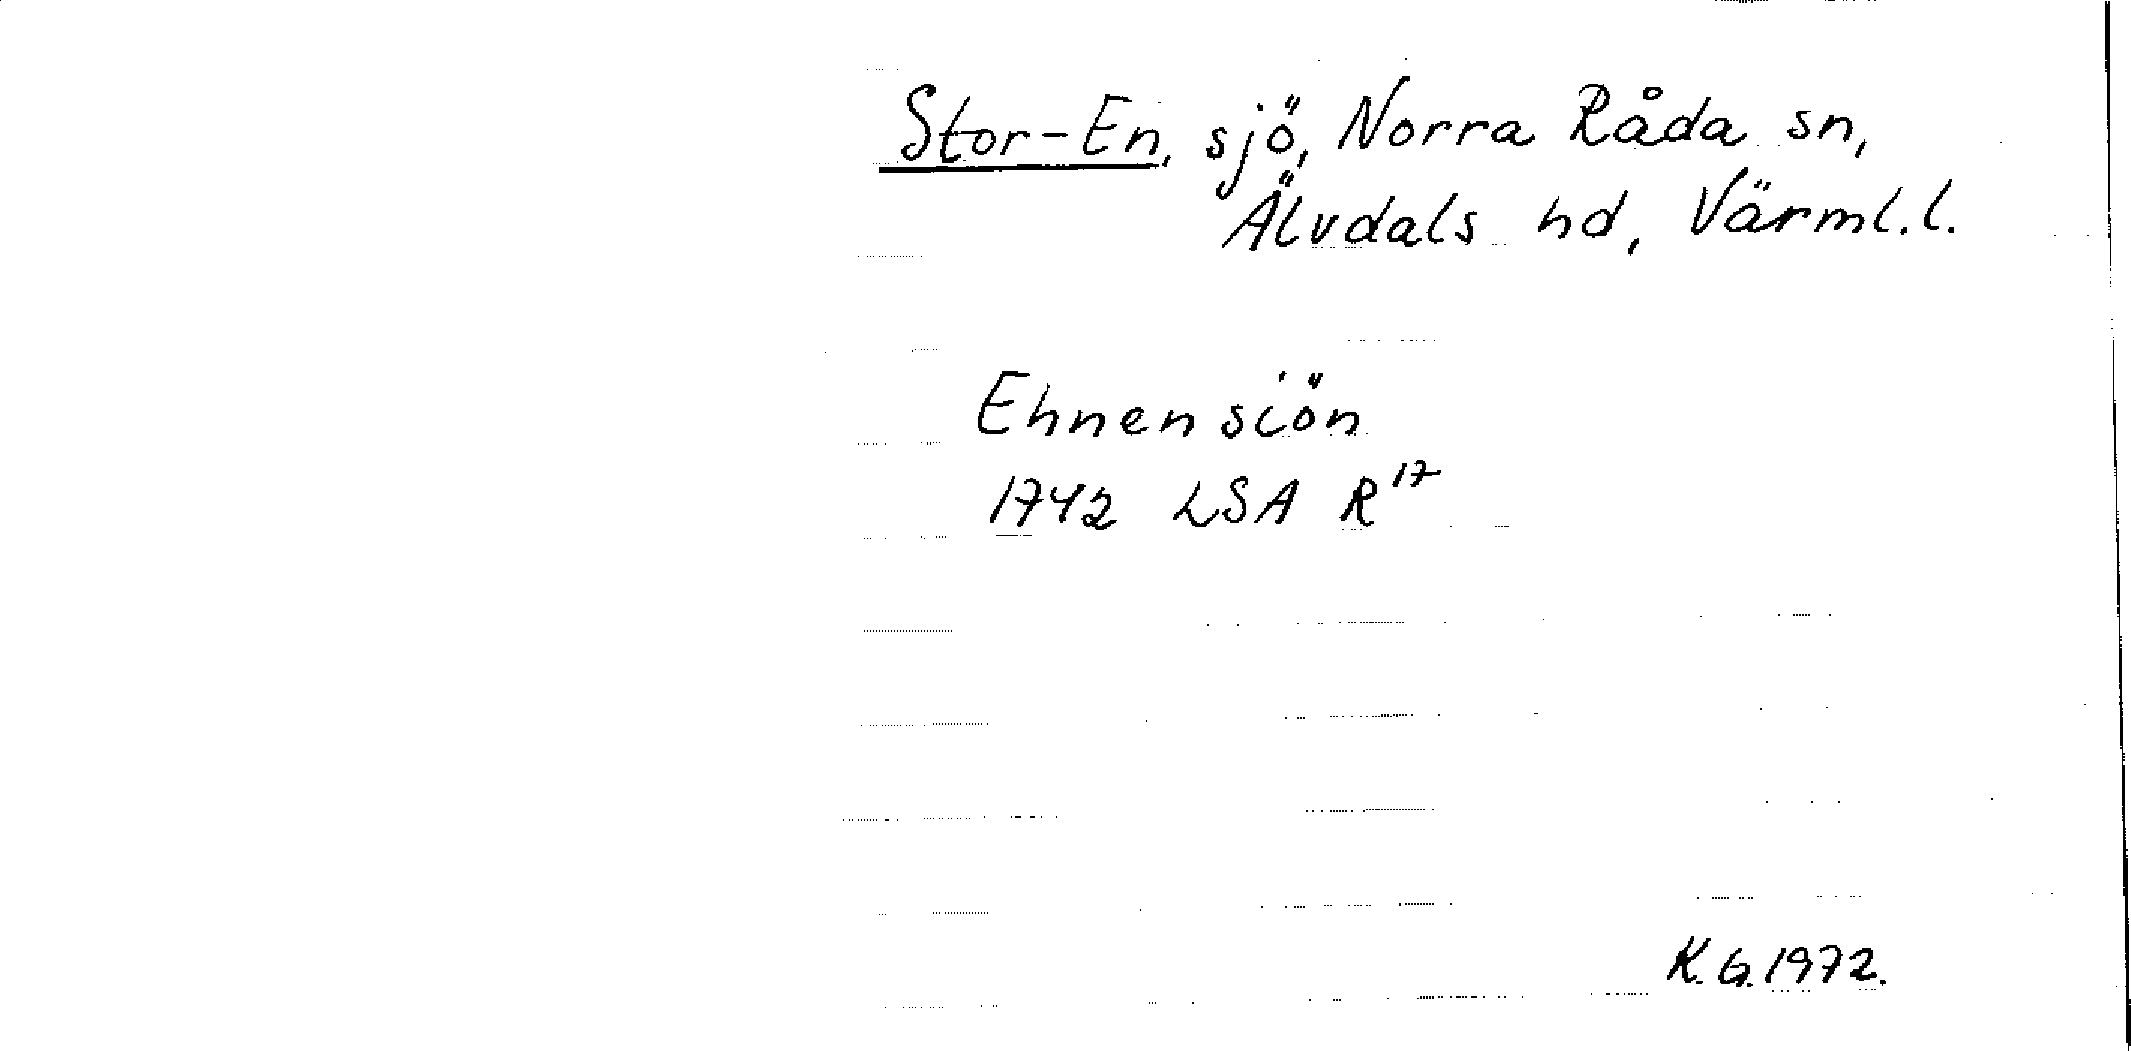 Stor-En, sjö, Norra Råda sn,
Älvdals hd, Värml. l.
Ehnensiön
1742 LSA R17
K. G. 1972.